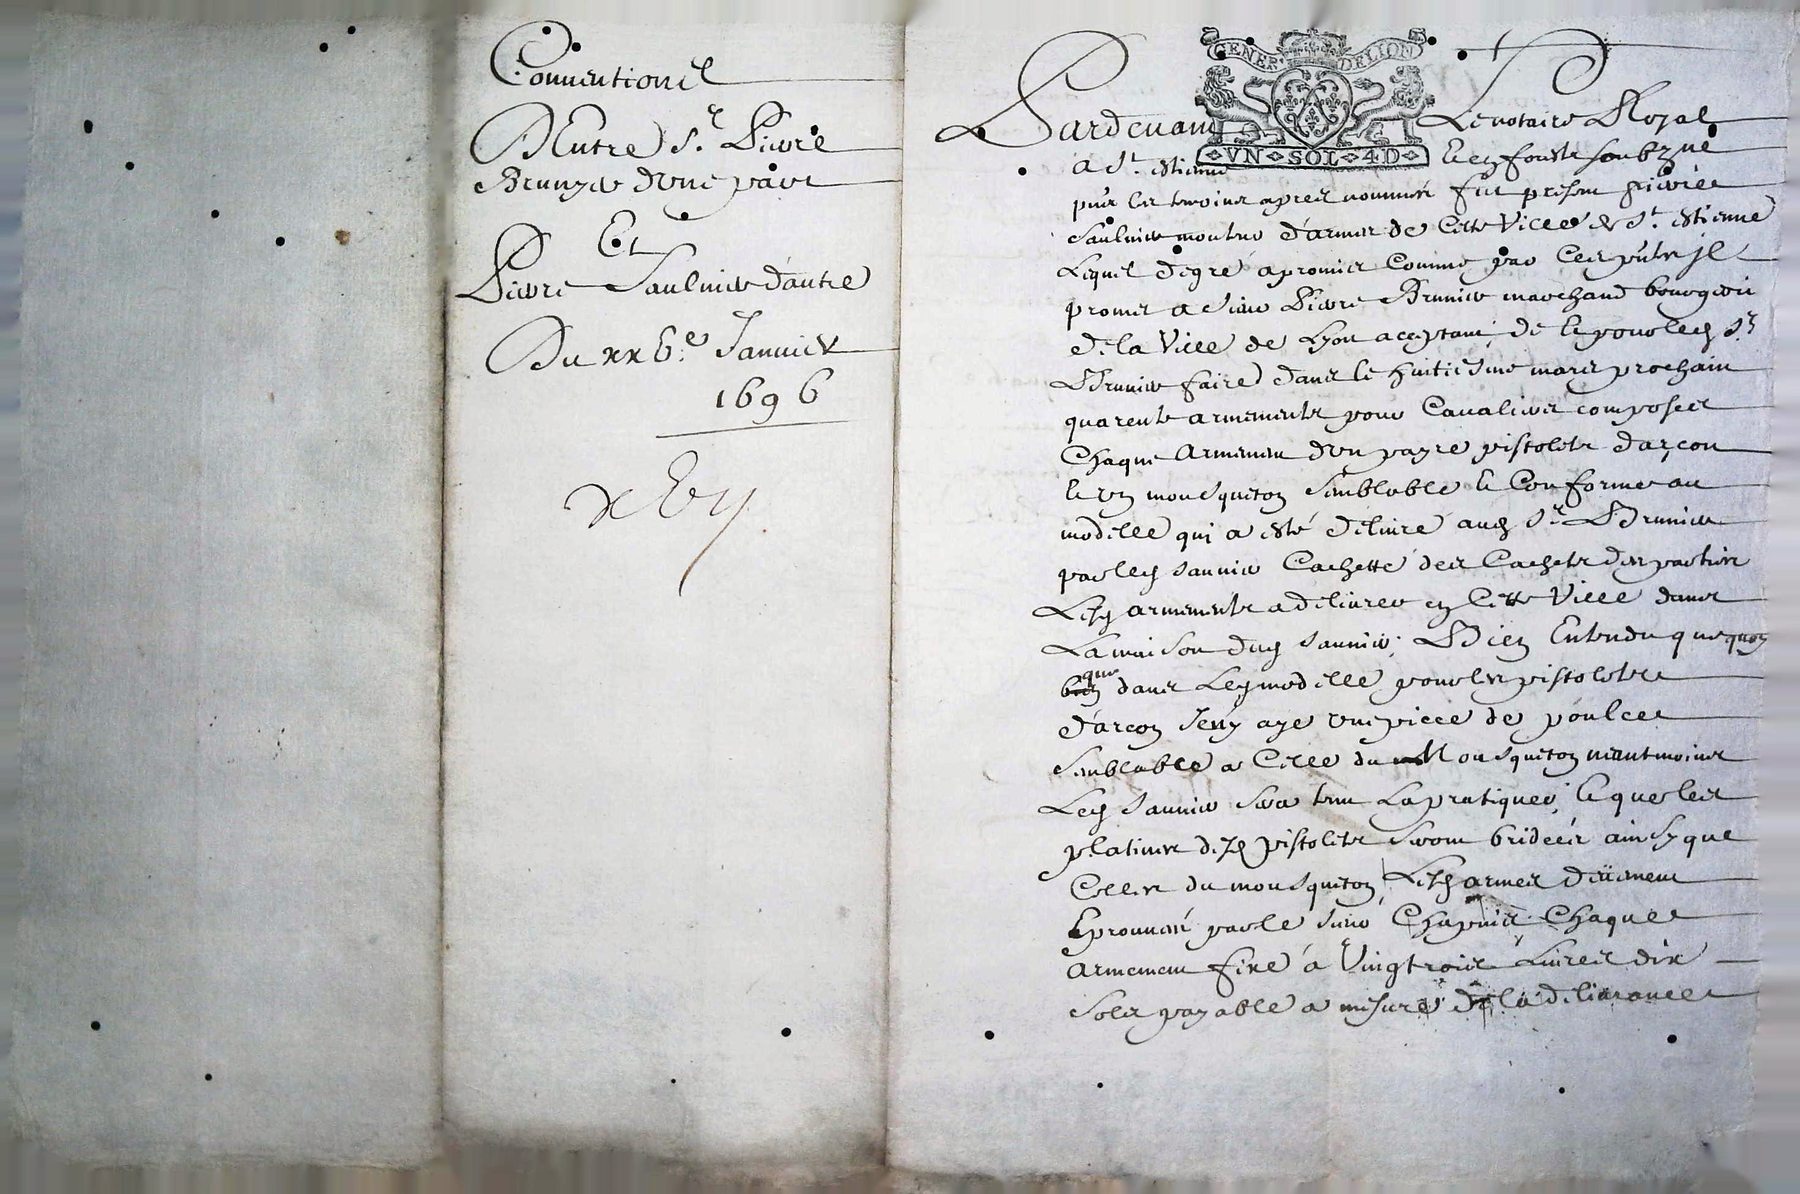 Conventionel
Entre Sr. Pierre
Brunier d'une part
Et
Pierre Saulnier d'autre
Du xx6e. Janvier
1696
GENER. DE LION
VN SOL 4 D
Pardevant Le notaire Royal
a St. estienne et en forestz soubzné
pnts les tesmoins apres nommés fut present pierre
Saulnier monteur d'armes de Cette Ville de St. Estienne
Lequel de gré a promis Comme par Ces pntes Il
promet a Sieur Pierre Brunier marchand bourgeois
de la Ville de Lyon acceptant, de et pour led. Sr.
Brunier faire dans le huitiesme mars prochain
quarente armements pour Cavaliers composés
Chaque Armement d'un payre pistolets d'arçon
et un mousqueton semblable et Conforme au
modelle qui a esté delivré aud. Sr. Brunier
par led. Saunier Cachetté des Cachets des parties
Lesd. armements a delivrer en Cette Ville dans
La maison dud. Saunier, Bien Entendu que quoy
que
bien dans Led. modelle pour les pistolets
d'arcon Il n'y aye une piece de poulce
semblable a Celle du Mousqueton neantmoins
Led. Saunier sera tenu La pratiquer, et que les
platines desd. pistolets seront bridées ainsy que
Celles du mousqueton, Lesd. armes deüement
Eprouvés par le Sieur Chapuis Chaque
Armement fixé à Vingt trois Livres dix
Sols payable a mesure de la delivrance